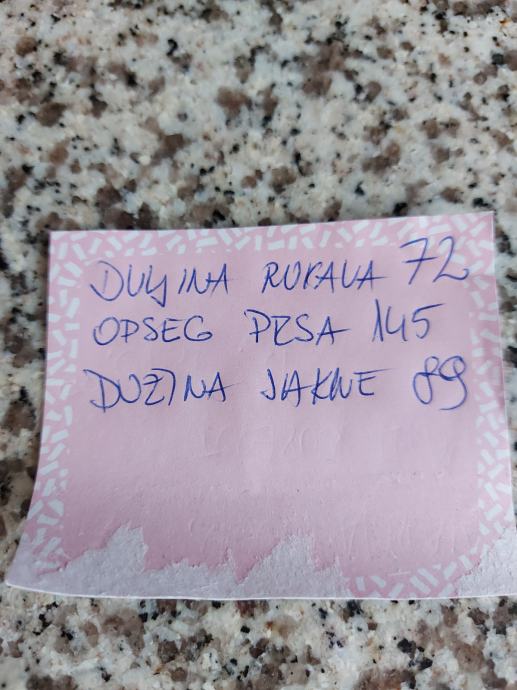 DULJINA RUKAVA 72
OPSEG PRSA 145
DUŽINA JAKNE 89